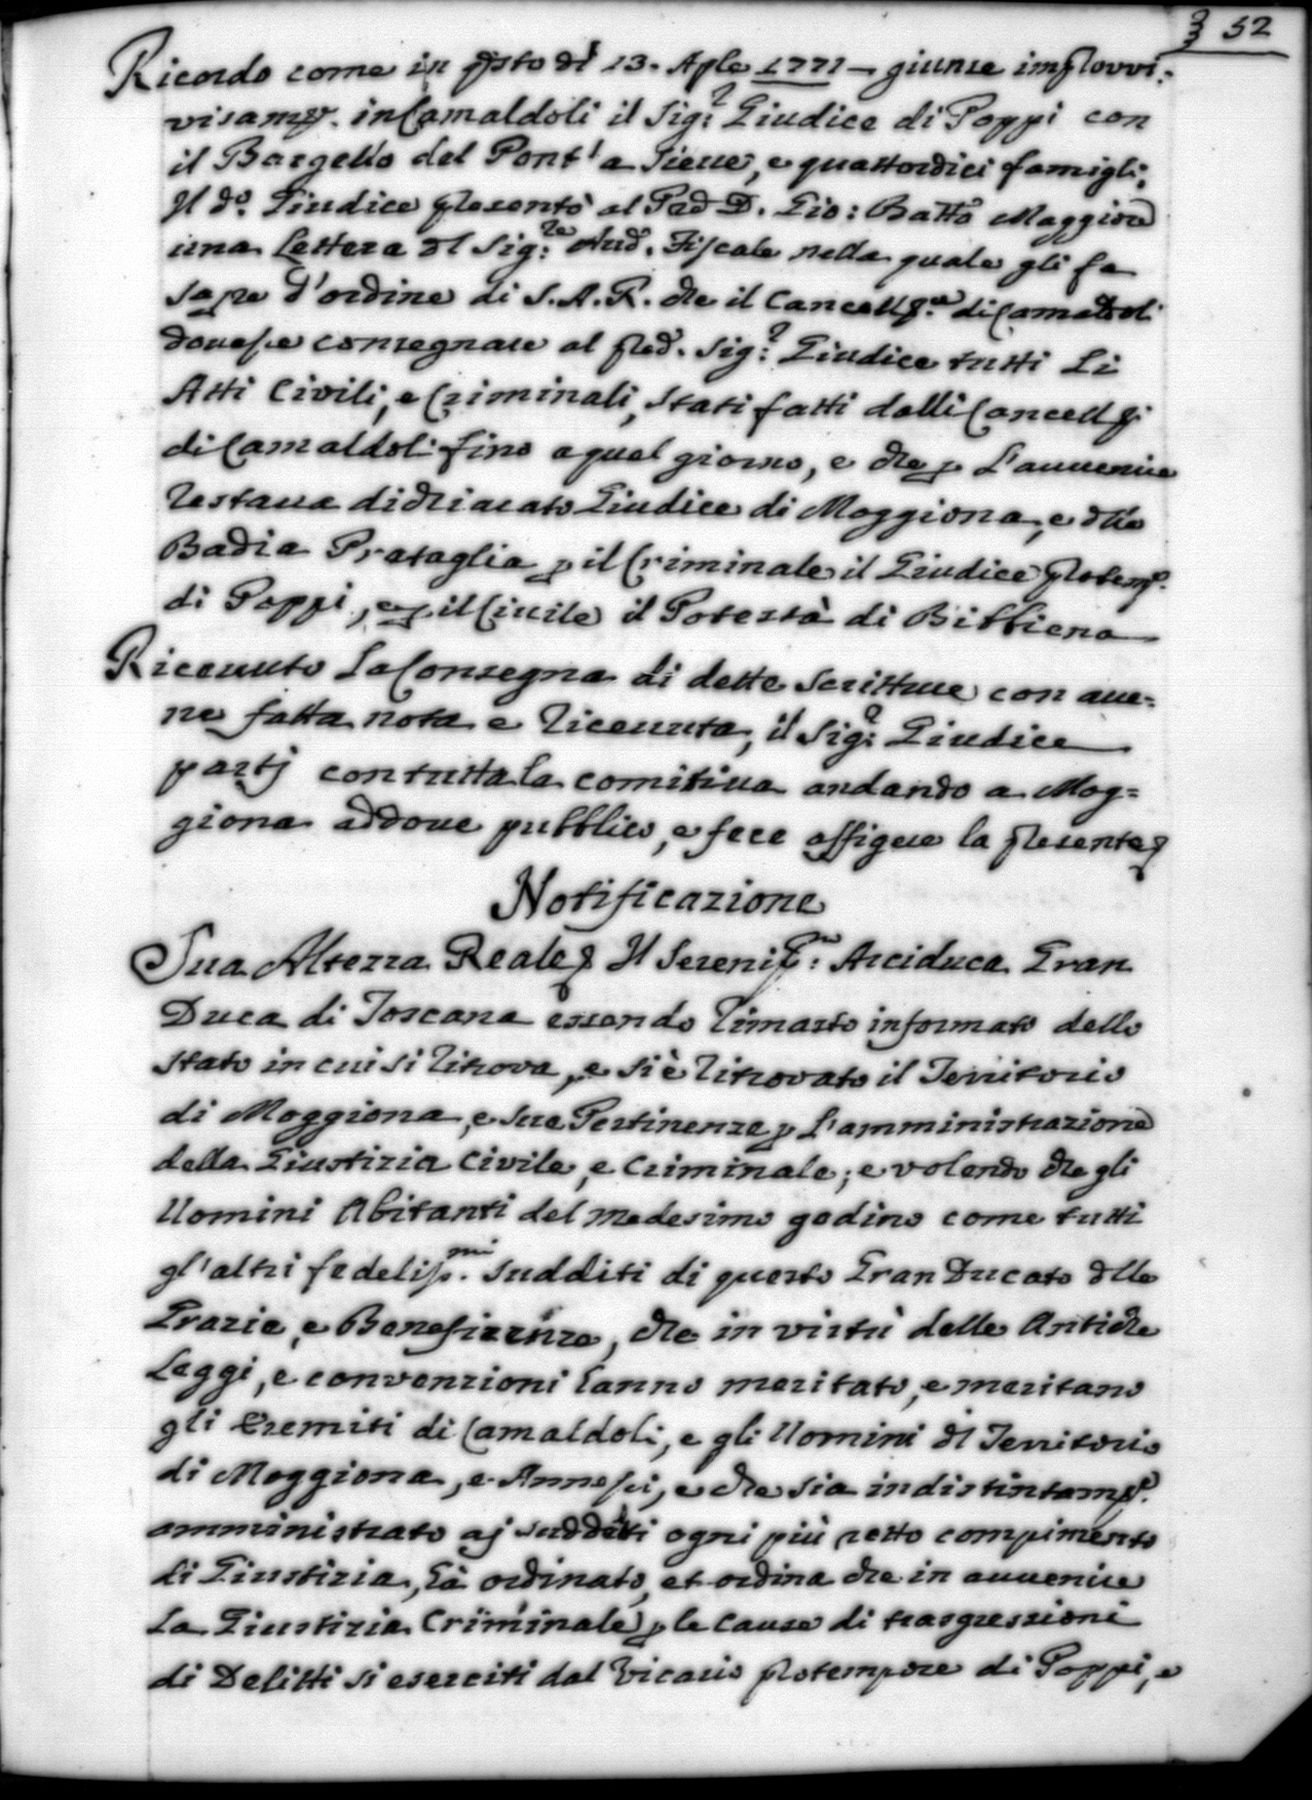 52
Ricordo come in qsto dì 13. Aple 1771 giunse improvvi:
visamte. in Camaldoli il Sig:r Giudice di Poppi con
il Bargello del Pont' a Sieve, e quattordici famigli;
Il do. Giudice presentò al Pad D. Gio: Batta Maggiore
una Lettera dl Sig:re Aud. Fiscale nella quale gli fa
sapre d'ordine di S.A.R. che il Cancellre di Camaldoli
dovesse consegnare al pred. Sig:r Giudice tutti Li
Atti Civili, e Criminali, stati fatti dalli Cancellri
di Camaldoli fino a quel giorno, e che p L'avvenire
restava dichiarato Giudice di Moggiona, e dlla
Badia Prataglia p il Criminale il Giudice protemp.
di Poppi, e p il Civile il Potestà di Bibbiena
Ricevuto La Consegna di dette scritture con aver=
ne fatta nota e ricevuta, il Sig:r Giudice
partj con tutta la comitiva andando a Mog=
giona addove pubblico, e fece affigere la presente
Notificazione
Sua Altezza Reale Il Sereniss:mo Arciduca Gran
Duca di Toscana essendo rimasto informato dello
stato in cui si ritrova, e si è ritrovato il Territorio
di Moggiona, e sue Pertinenze p L'amministrazione
della Giustizia Civile, e Criminale; e volendo che gli
Uomini Abitanti del medesimo godino come tutti
gl'altri fedeliss.mi sudditi di questo Gran Ducato dlle
Grazie, e Beneficenze, che in virtù delle Antiche
Leggi, e convenzioni hanno meritato, e meritano
gli Eremiti di Camaldoli, e gli Uomini dl Territorio
di Moggiona, e Annessi, e che sia indistintamte.
amministrato aj sudditi ogni più retto compimento
di Giustizia, hà ordinato, et ordina che in avvenire
La Giustizia Criminale p le cause di trasgressioni
di Delitti si eserciti dal Vicario protempore di Poppi, e